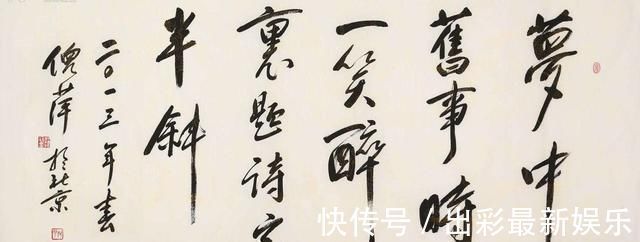 夢中
舊事時
一笑醉
裏題詩字
半斜
二〇一三年春
倪萍於北京
快传号 / 出彩最新娱乐